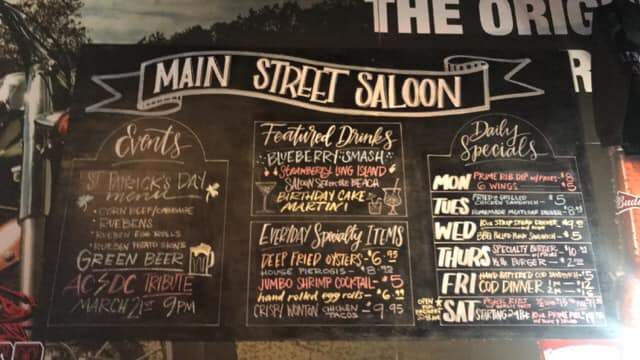 THE ORIG
R
MAIN STREET SALOON
Events
ST PATRICK'S DAY
menu
• CORN BEEF/CABBAGE
• RUEBENS
• RUEBEN EGG ROLLS
• RUEBEN POTATO SKINS
GREEN BEER
AC⚡DC TRIBUTE
MARCH 21st 9PM
Featured Drinks
BLUEBERRY SMASH
STRAWBERRY LONG ISLAND
SALOON SEX ON THE BEACH
BIRTHDAY CAKE
MARTINI
EVERYDAY Specialty ITEMS
DEEP FRIED OYSTERS - $6.95
HOUSE PIEROGIS - $8.92
JUMBO SHRIMP COCKTAIL - $5
hand rolled egg rolls - $6
CRISPY WONTON CHICKEN TACOS - 9.95
Daily
Specials
MON PRIME RIB DIP
6 WINGS
TUES
CHICKEN SANDWICH - $5
HOMEMADE MEATLOAF DINNER
WED 10oz STRIP STEAK DINNER
BBQ PULLED PORK SANDWICH - $5
THURS SPECIALTY BURGER
1/2 lb. BURGER
FRI HAND BATTERED COD SANDWICH - $5
COD DINNER
SAT PRIME RIB
STARTING 2-4PM
OPEN
Bud